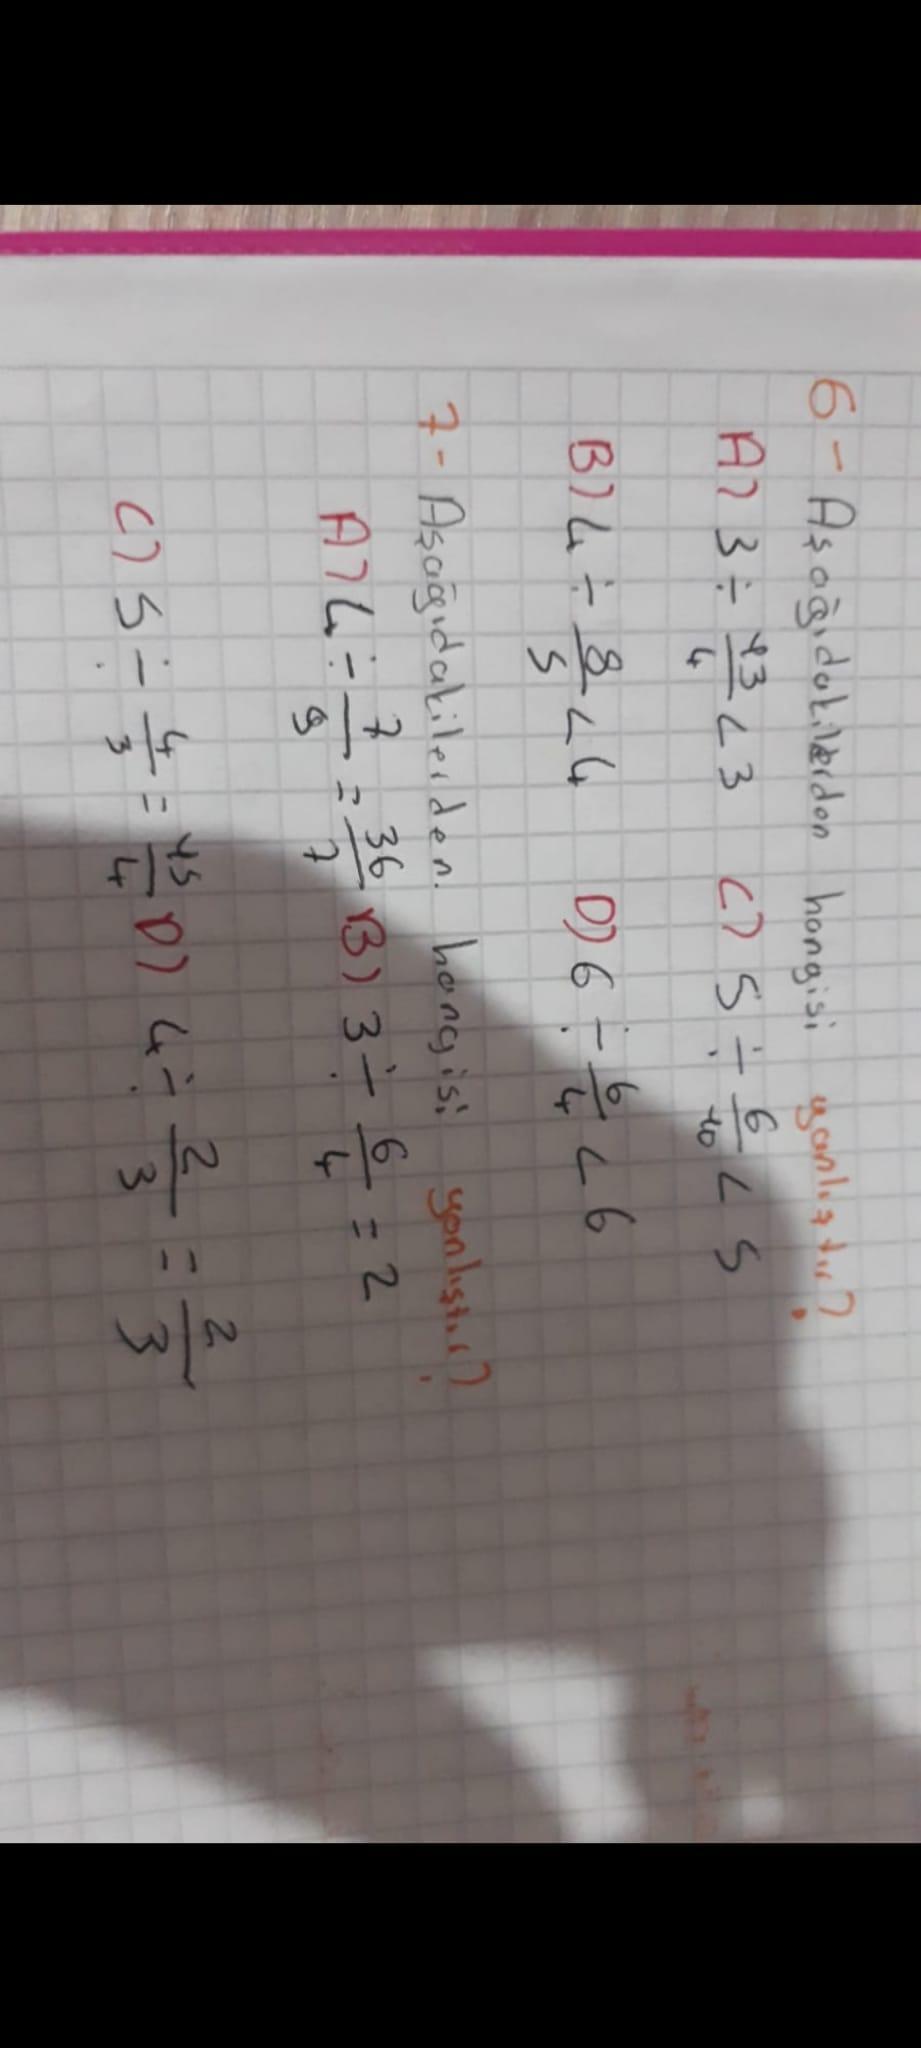 6- Aşağıdakilerdon hangisi yanlıştır?
A) 3 ÷ 13/4 < 3 C) 5 ÷ 6/10 < 5
B) 4 ÷ 8/5 < 4 D) 6 ÷ 6/4 < 6
7- Aşağıdakilerden hangisi yanlıştır?
A) 4 ÷ 7/9 = 36/7 B) 3 ÷ 6/4 = 2
C) 5 ÷ 4/3 = 15/4 D) 4 ÷ 2/3 = 2/3